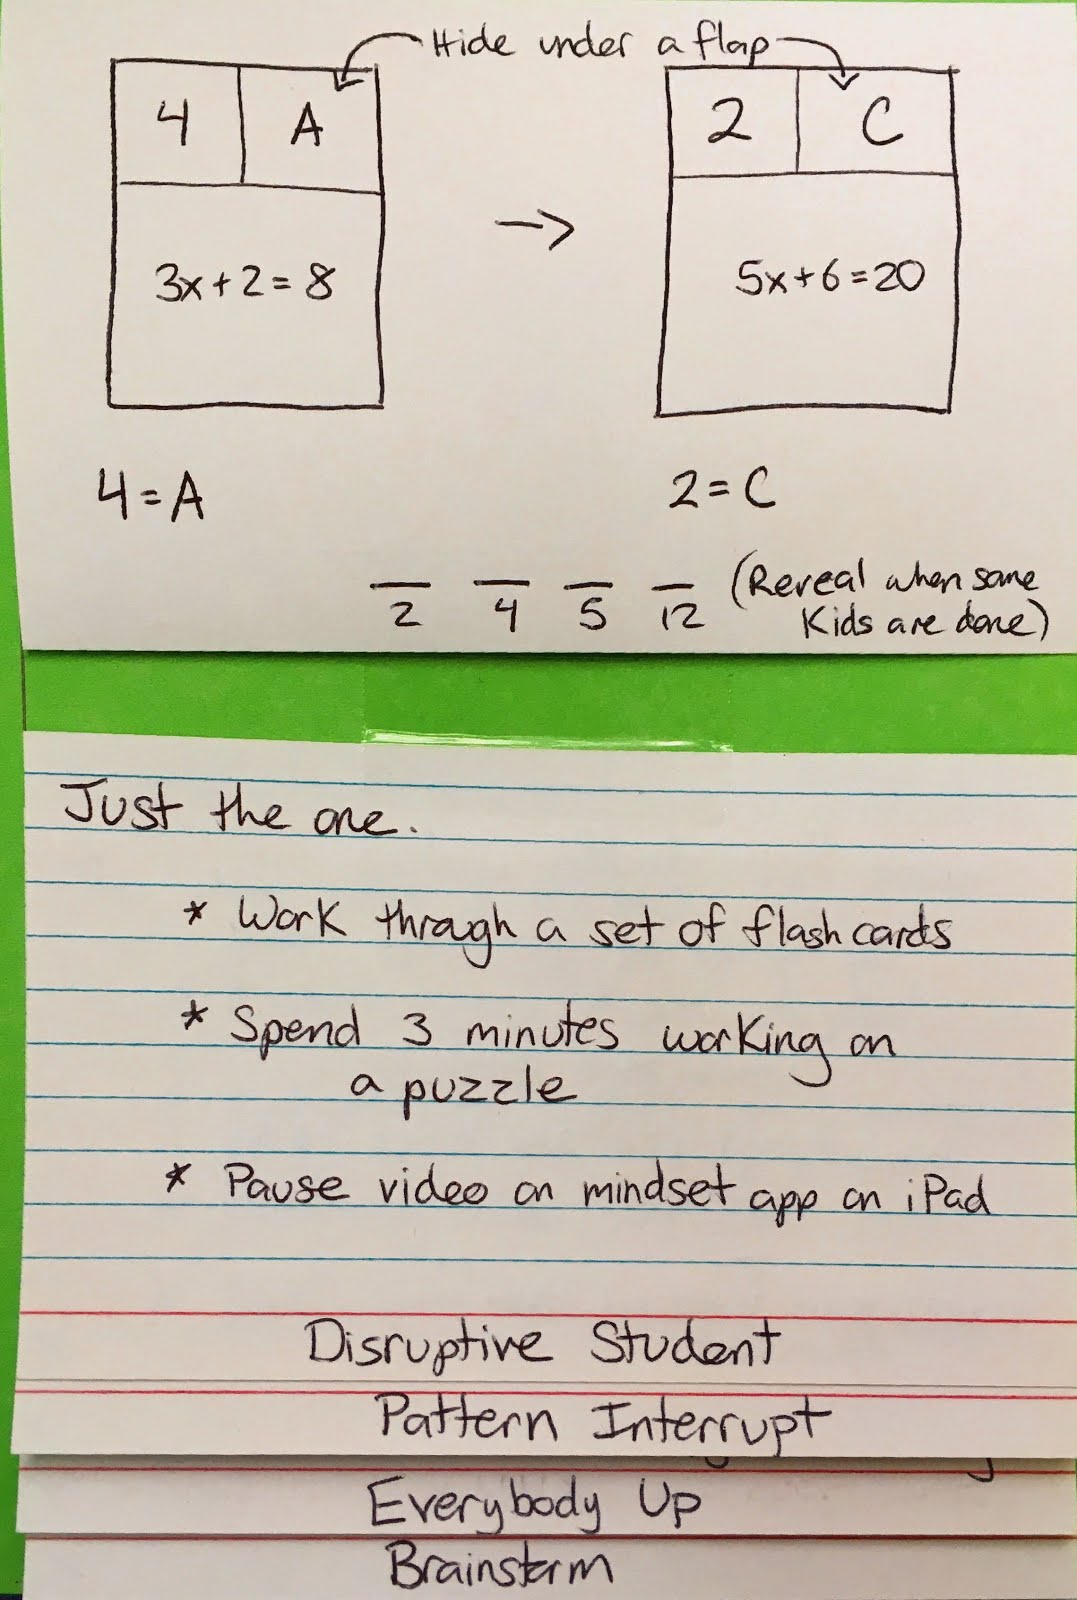 Hide under a flap
4 A
2 C
3x+2=8
→
5x+6=20
4=A
2=C
2 4 5 12
(Reveal when some
Kids are done)
Just the one.
* Work through a set of flashcards
* Spend 3 minutes working on
a puzzle
* Pause video on mindset app on iPad
Disruptive Student
Pattern Interrupt
Everybody Up
Brainstorm